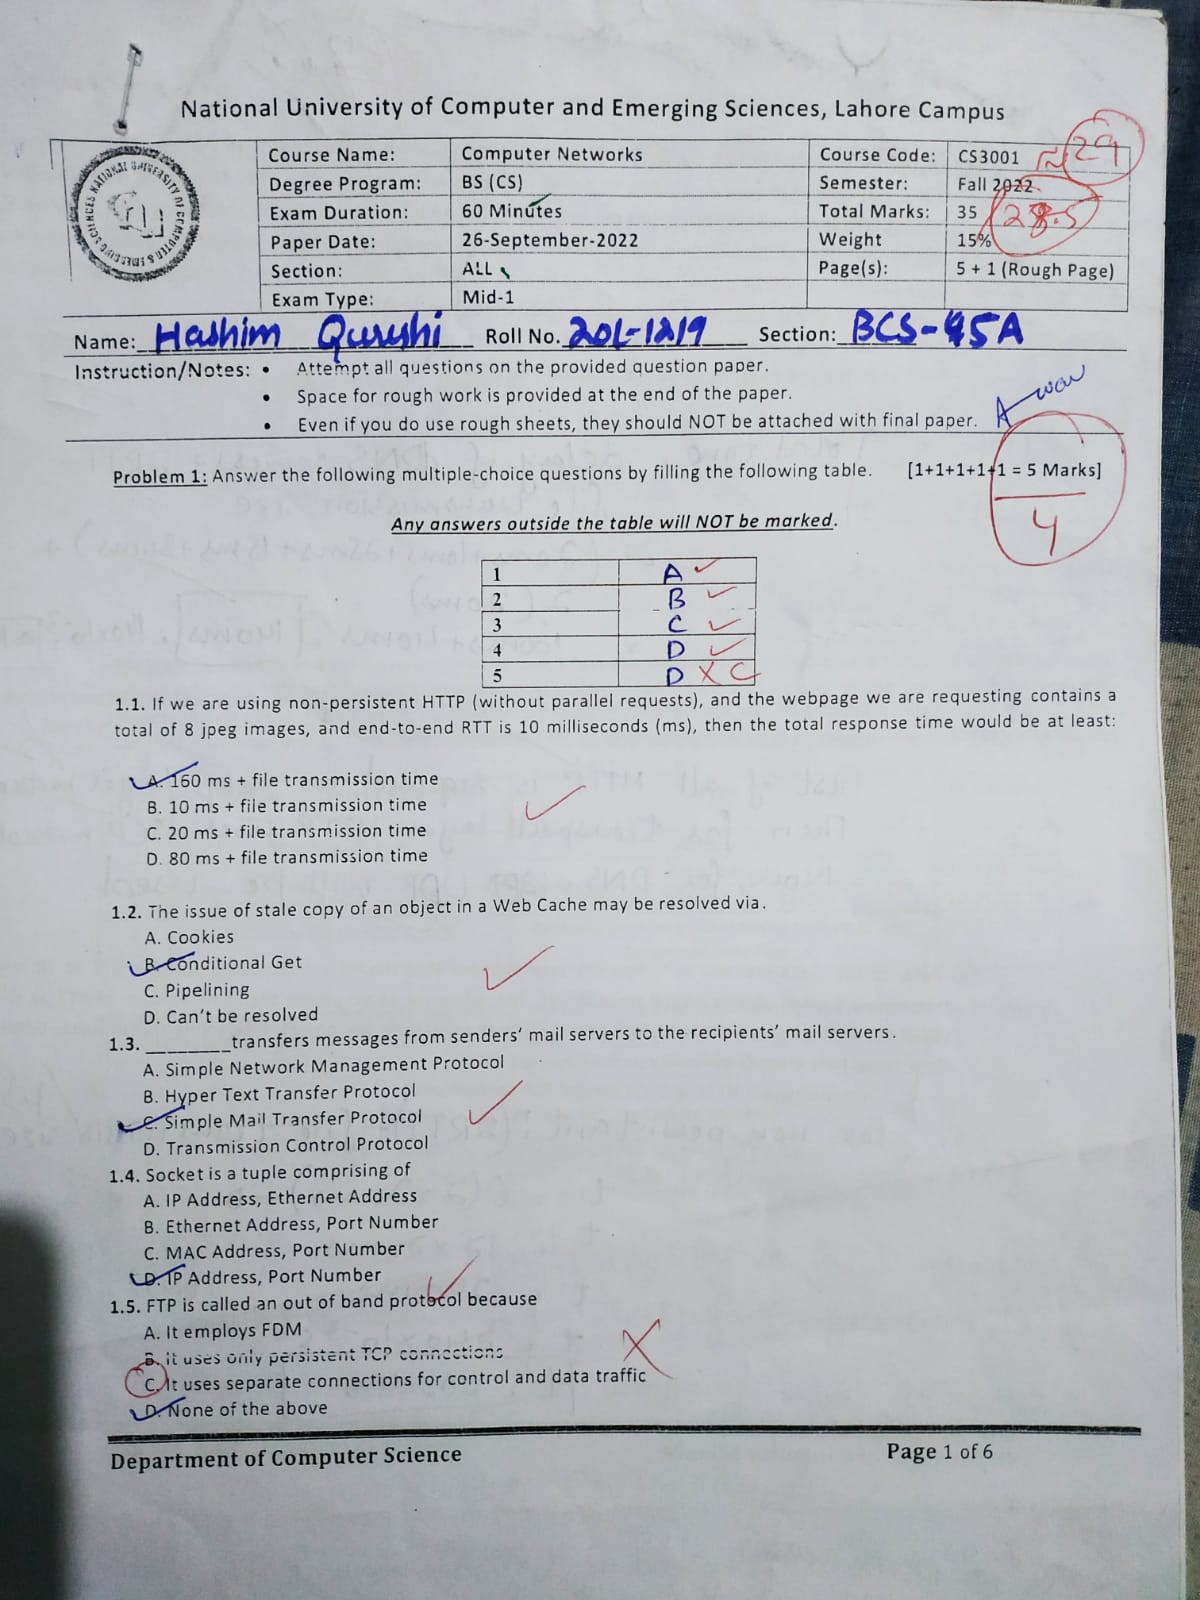 National University of Computer and Emerging Sciences, Lahore Campus
Course Name: Computer Networks Course Code: CS3001 ≈ 29
Degree Program: BS (CS) Semester: Fall 2022
Exam Duration: 60 Minutes Total Marks: 35 28.5
Paper Date: 26-September-2022 Weight 15%
Section: ALL Page(s): 5 + 1 (Rough Page)
Exam Type: Mid-1
Name: Hashim Qureshi Roll No. 20L-1219 Section: BCS-5A
Instruction/Notes: • Attempt all questions on the provided question paper.
• Space for rough work is provided at the end of the paper.
• Even if you do use rough sheets, they should NOT be attached with final paper.
Problem 1: Answer the following multiple-choice questions by filling the following table. [1+1+1+1+1 = 5 Marks]
4
Any answers outside the table will NOT be marked.
1 A
2 B
3 C
4 D
5 D X C
1.1. If we are using non-persistent HTTP (without parallel requests), and the webpage we are requesting contains a
total of 8 jpeg images, and end-to-end RTT is 10 milliseconds (ms), then the total response time would be at least:
A. 160 ms + file transmission time
B. 10 ms + file transmission time
C. 20 ms + file transmission time
D. 80 ms + file transmission time
1.2. The issue of stale copy of an object in a Web Cache may be resolved via.
A. Cookies
B. Conditional Get
C. Pipelining
D. Can't be resolved
1.3. ________transfers messages from senders' mail servers to the recipients' mail servers.
A. Simple Network Management Protocol
B. Hyper Text Transfer Protocol
C. Simple Mail Transfer Protocol
D. Transmission Control Protocol
1.4. Socket is a tuple comprising of
A. IP Address, Ethernet Address
B. Ethernet Address, Port Number
C. MAC Address, Port Number
D. IP Address, Port Number
1.5. FTP is called an out of band protocol because
A. It employs FDM
B. It uses only persistent TCP connections
C. It uses separate connections for control and data traffic
D. None of the above
Department of Computer Science Page 1 of 6